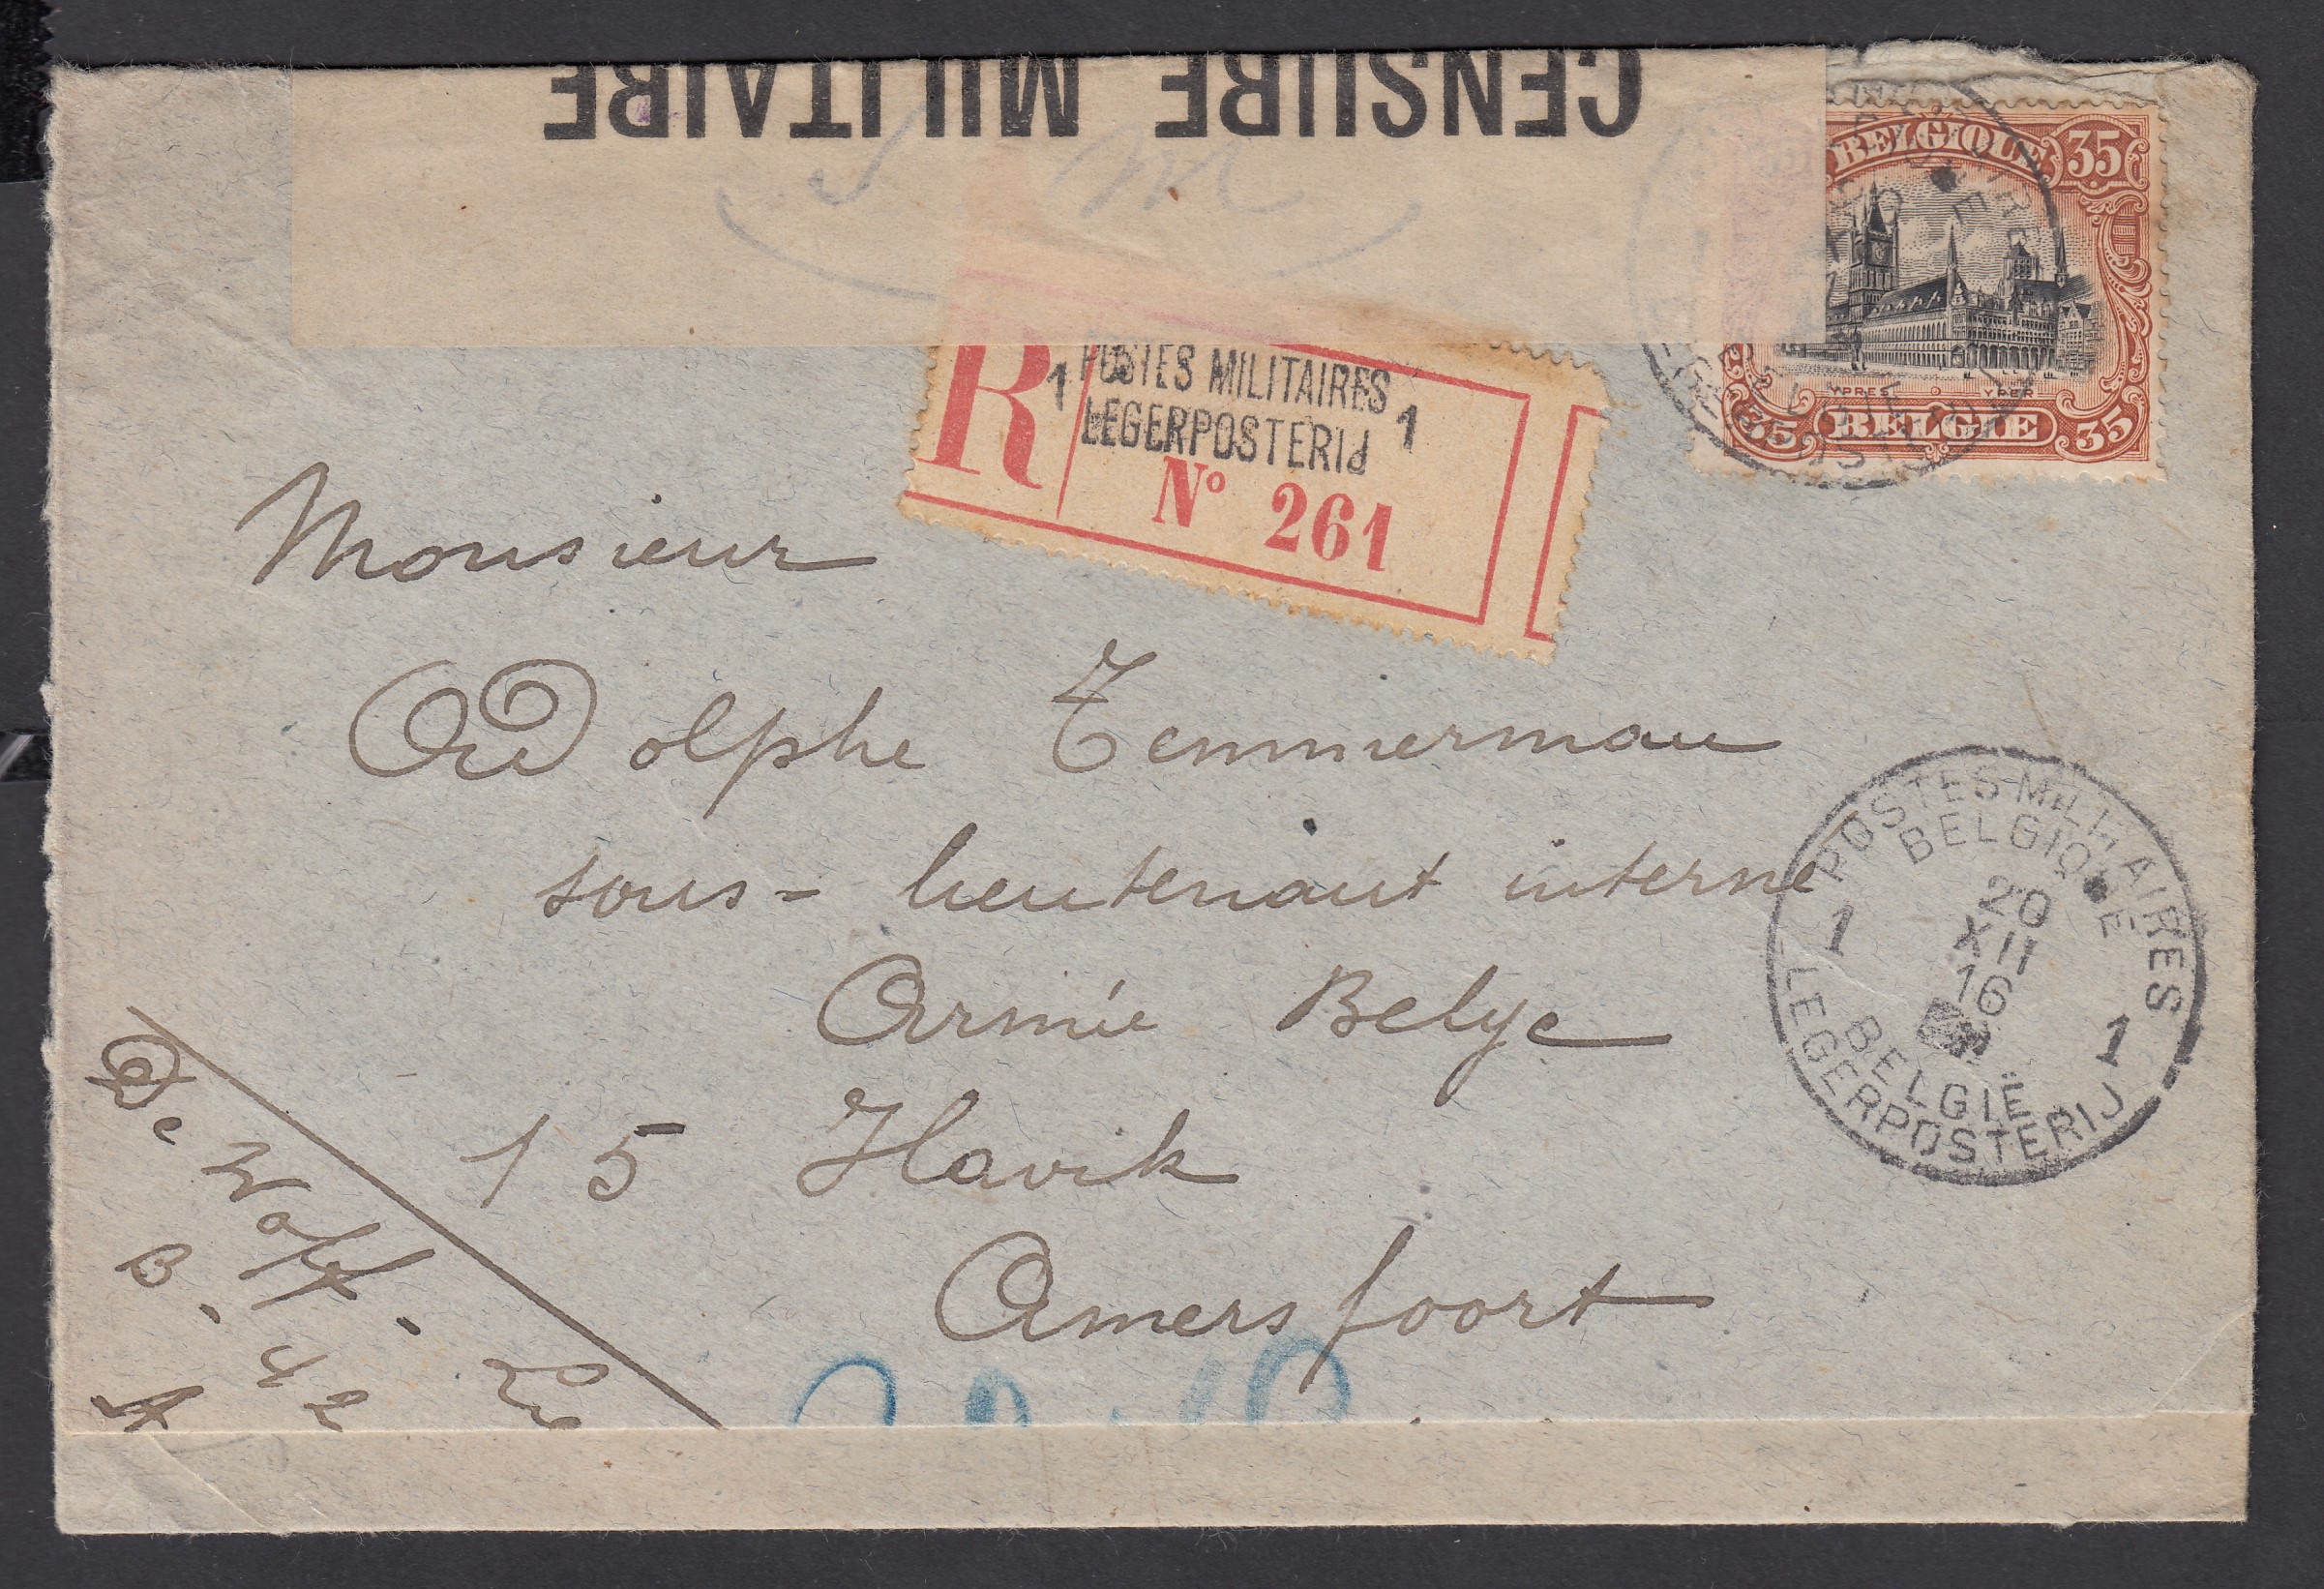 CENSURE MILITAIRE
BELGIQUE 35
YPRES YPER
35 BELGIË 35
R
1 POSTES MILITAIRES 1
LEGERPOSTERIJ
Nº 261
Monsieur
Adolphe Temmerman
sous-lieutenant interné
Armée Belge
15 Havik
Amersfoort
POSTES MILITAIRES
BELGIQUE
1 20 1
XII
16
E
BELGIË
LEGERPOSTERIJ
De
B. 42